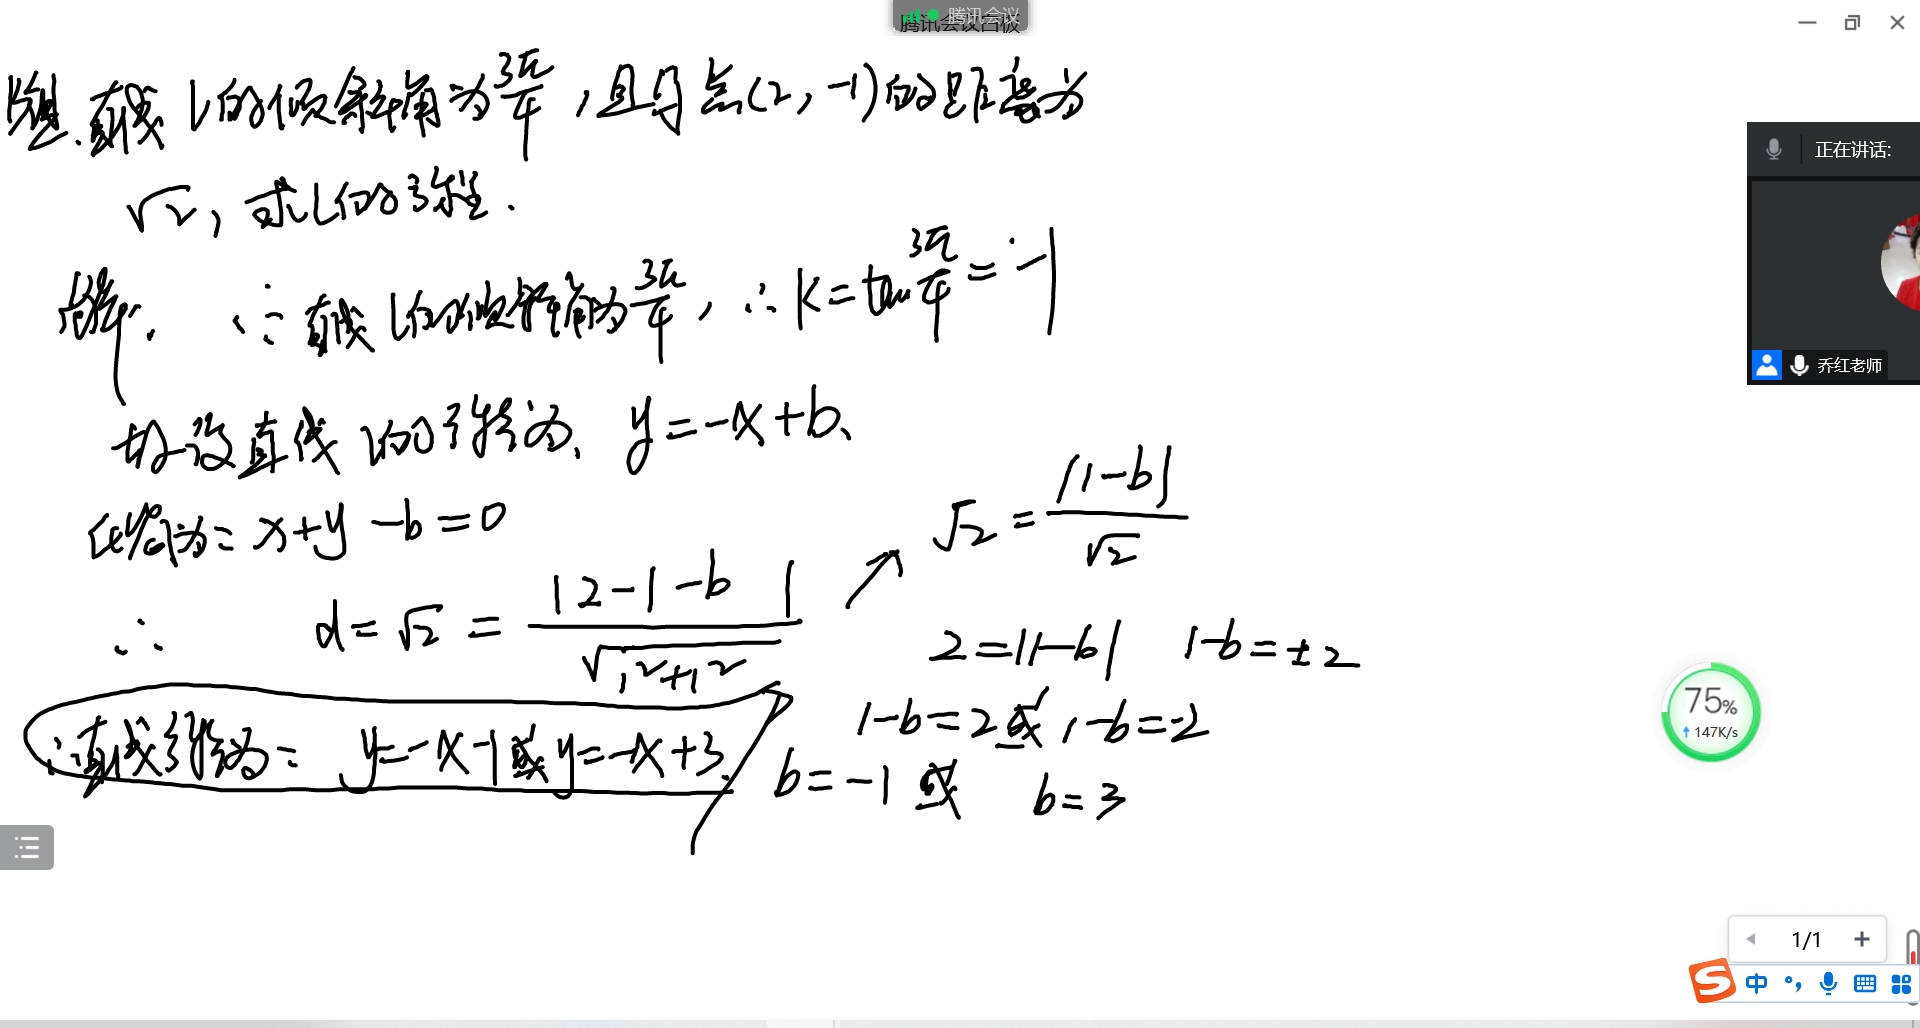 腾讯会议
腾讯会议白板
例题.直线l的倾斜角为3π/4,且与点(2,-1)的距离为
√2,求l的方程.
解. ∵直线l的倾斜角为3π/4,∴k=tan3π/4=-1
故设直线l的方程为、y=-x+b、
化简为: x+y-b=0
∴ d=√2=|2-1-b|/√(1²+1²)
√2=|1-b|/√2
2=|1-b| 1-b=±2
1-b=2或1-b=-2
b=-1或 b=3
∴直线方程为: y=-x-1或y=-x+3.
正在讲话:
乔红老师
75%
147K/s
1/1
S中